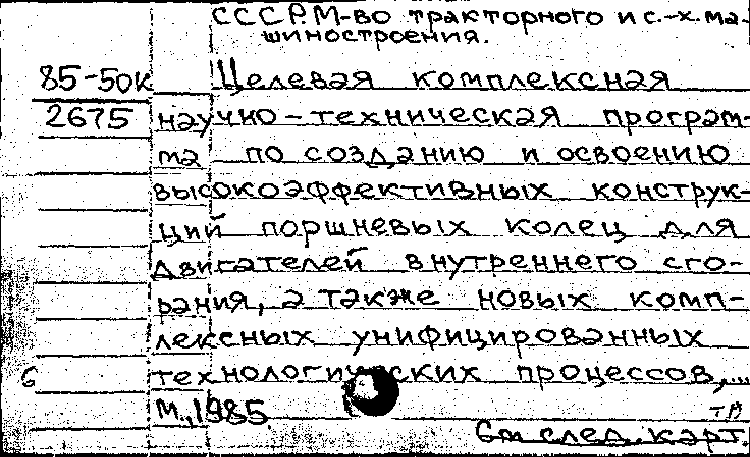 СССР. М-во тракторного и с.-х. ма-
шиностроения.
85-50к
2675
Целевая комплексная
научно-техническая програм-
ма по созданию и освоению
высокоэффективных конструк-
ций поршневых колец для
двигателей внутреннего сго-
рания, а также новых комп-
лексных унифицированных
технологических процессов,...
б
М., 1985.
тд
См след. карт.